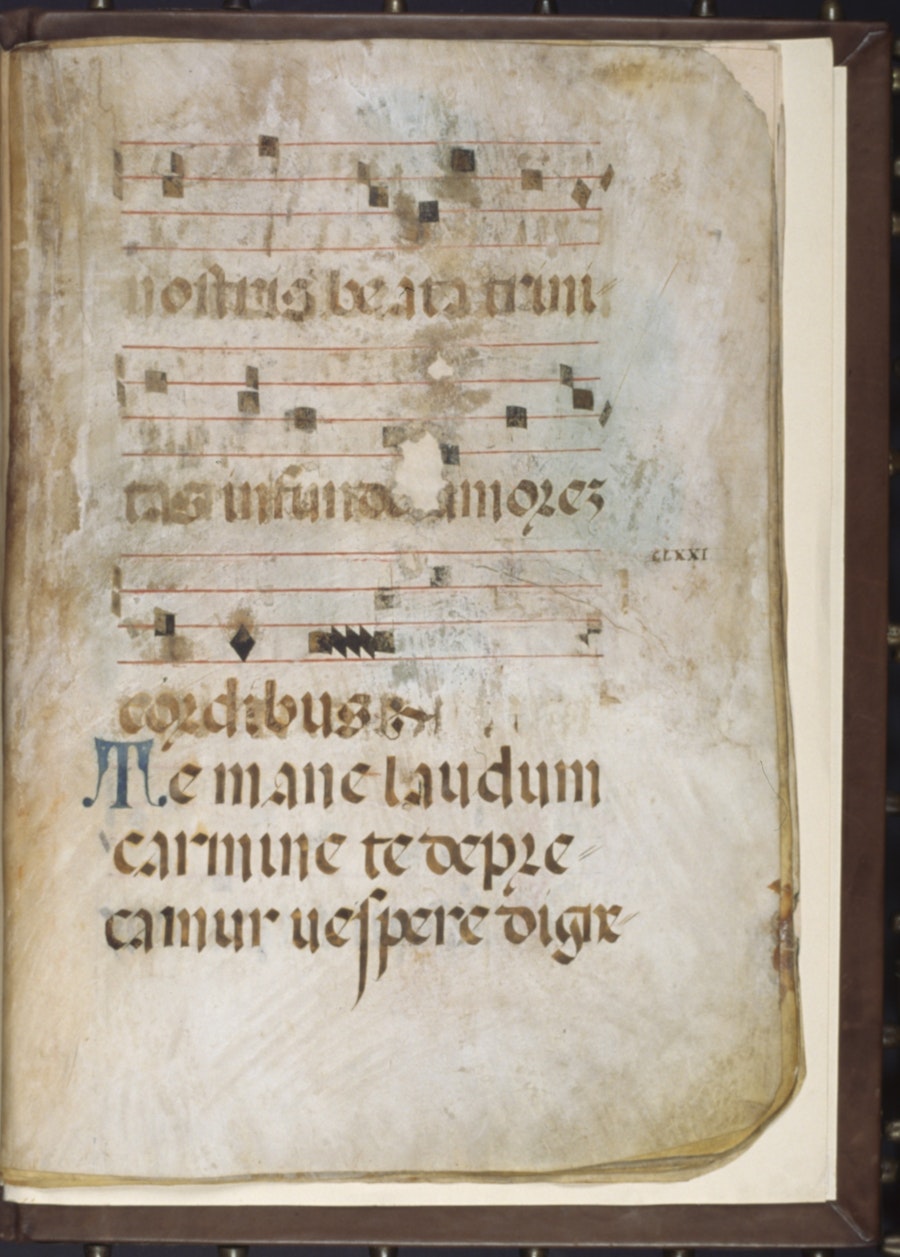 nostris beata trini
tas infunde amorez
CLXXI
cordibus
Te mane laudum
carmine te depre
camur uespere digne